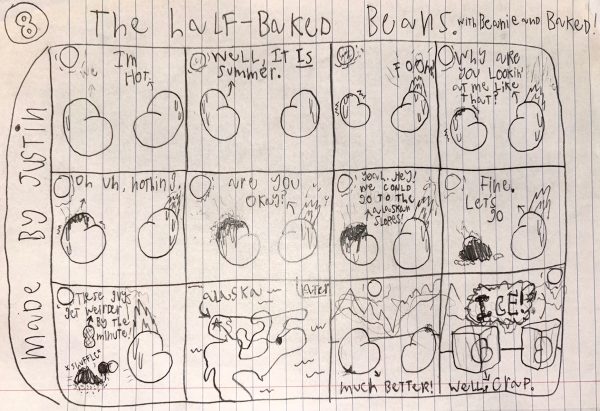 8
The Half-Baked Beans. with Beanie and Baked!
MADE BY JUSTIN
I'm
HOT.
Well, It Is
summer.
FOOM
Why are
you lookin'
at me like
that?
Oh uh, nothing.
are you
okay?
yeah. Hey!
We could
go to the
alaskan
slopes!
Fine.
Let's
go
These guys
get weirder
by the
minute!
*SNUFFLE*
alaska
Later
much Better!
ICE!
well, Crap.